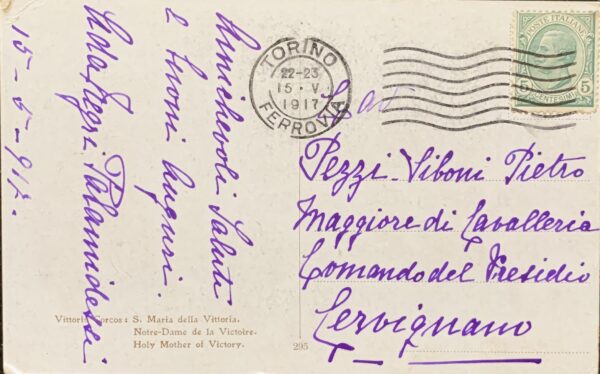 Amichevoli Saluti
e buoni auguri.
Negri Palamidessi
15-5-917.
TORINO
22-23
15·V
1917
FERROVIA
POSTE ITALIANE
5 CENTESIMI 5
Pezzi-Siboni Pietro
Maggiore di Cavalleria
Comando del Presidio
Cervignano
Vittorio Corcos: S. Maria della Vittoria.
Notre-Dame de la Victoire.
Holy Mother of Victory.
295